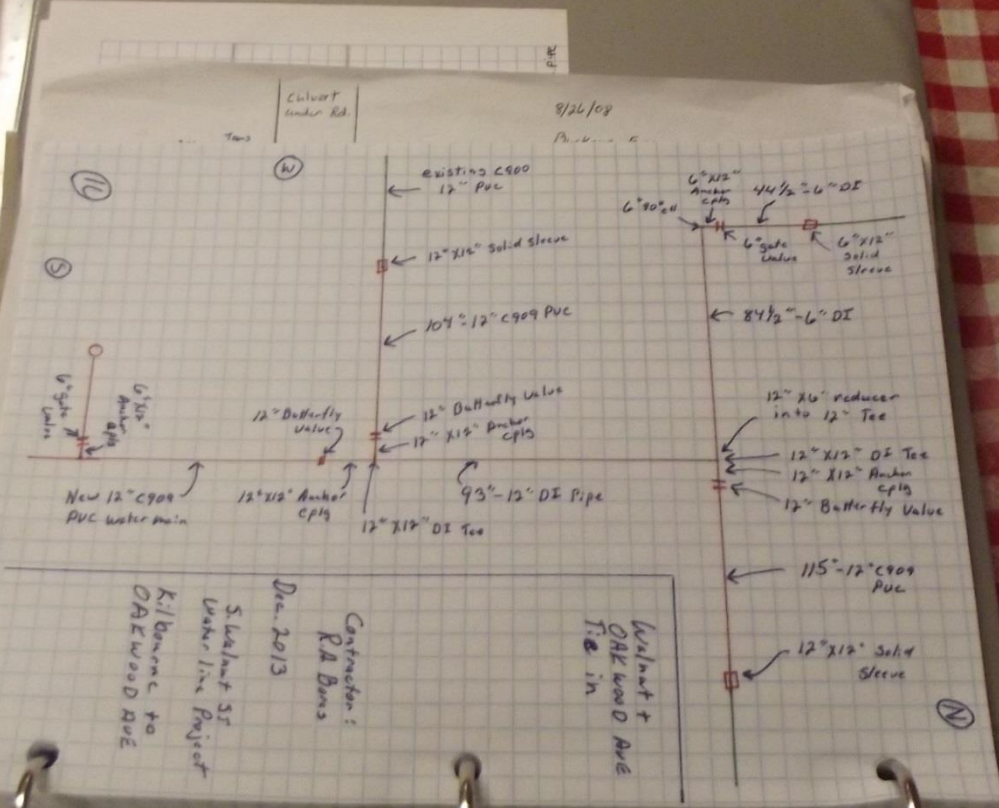 Culvert
under Rd.
8/26/08
Trans
W
existing C900
12" PVC
12"X12" Solid Sleeve
104"-12" C909 PVC
12" Butterfly Valve
12" X12" Anchor
cplg
12" Butterfly
Valve
S
6" gate
Valve
6"X12"
Anchor
cplg
New 12" C909
PVC water main
12"X12" Anchor
cplg
12"X12" DI Tee
93"-12" DI Pipe
6"X12"
Anchor
cplg
44 1/2"-6" DI
6" gate
Valve
6"X12"
Solid
Sleeve
84 1/2"-6" DI
12" X6" reducer
into 12" Tee
12"X12" DI Tee
12" X12" Anchor
cplg
12" Butterfly Valve
115"-12" C909
PVC
12"X12" Solid
Sleeve
N
Walnut +
OAKWOOD AVE
Tie in
Contractor:
RA Bores
Dec. 2013
S. Walnut ST
Waterline Project
Kilbourne to
OAKWOOD AVE